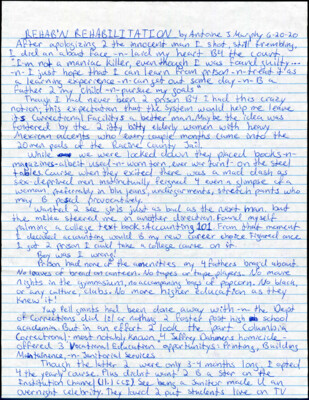 REHAB'N REHABILITATION by Antoine S. Murphy 6-20-20
After apologizing 2 the innocent man I shot, still trembling,
I did an about face -n- laid my heart B4 the court.
"I'm not a maniac killer, even though I was found guilty...
-n- I just hope that I can learn from prison -n- treat it as
a learning experience -n- can get out some day -n- B a
father 2 my child -n- pursue my goals"
Though I had never been 2 prison B4 I had this crazy
notion; this expectation that the system would help me leave
its Correctional Facility a better man. Maybe the idea was
fostered by the 2 itty bitty elderly women with heavy
Mexican accents who every couple months came into the
20 men pods of the Racine County Jail.
While we were locked down they placed books -n-
magazines - albeit used -n- worn torn ever wor but - on the steel
tables. Cause when they exited there was a mad dash as
sex-deprived men instinctually feigned 4 even a glimpse of a
woman, preferably in like jeans, undergarments, stretch pants who
may B posed provocatively.
I wanted 2 see girls just as bad as the next man, but
the melee steered me in another direction. Found myself
palming a college text book: Accounting 101. From that moment
I decided accounting would B my new career choice. Figured once
I got 2 prison I could take a college course on it.
Boy was I wrong!
Prison had none of the amenities my 4 fathers bragged about.
No loaves of bread on canteen. No tapes or tape players. No movie
nights in the gymnasium, no accompanying bags of popcorn. No black,
or any culture, clubs. No more higher education as they
knew it!
Pell grants had been done away with -n- the Dept
of Corrections did lil or nothing 2 foster post high school
academia. But in an effort 2 look the part Columbia
Correctional - most notably known 4 Jeffrey Dahmer's homicide -
offered 3 Vocational Education opportunity's: Printing, Building
Maintenance, -n- Janitorial Services.
Though the latter 2 were only 3-4 months long, I opted
4 the yearly course. Plus didn't want 2 B a star on the
Institution Channel (U.I.C.C.I). See being a Janitor made U an
overnight celebrity. They loved 2 put students live on TV